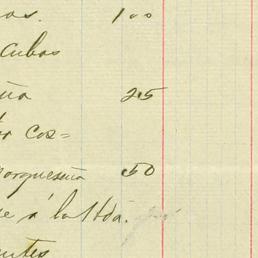 as. 1.00
Cubas
ña 25
or cos=
orqueseña .50
se á la Hda.
entes